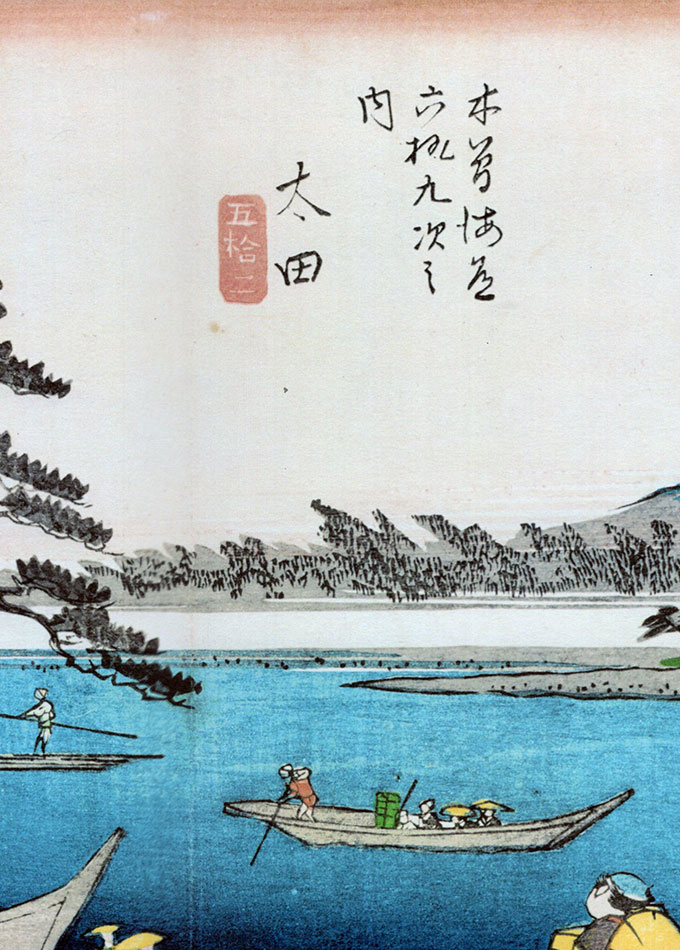 木曽海道
六拾九次之
内
太田
五拾二